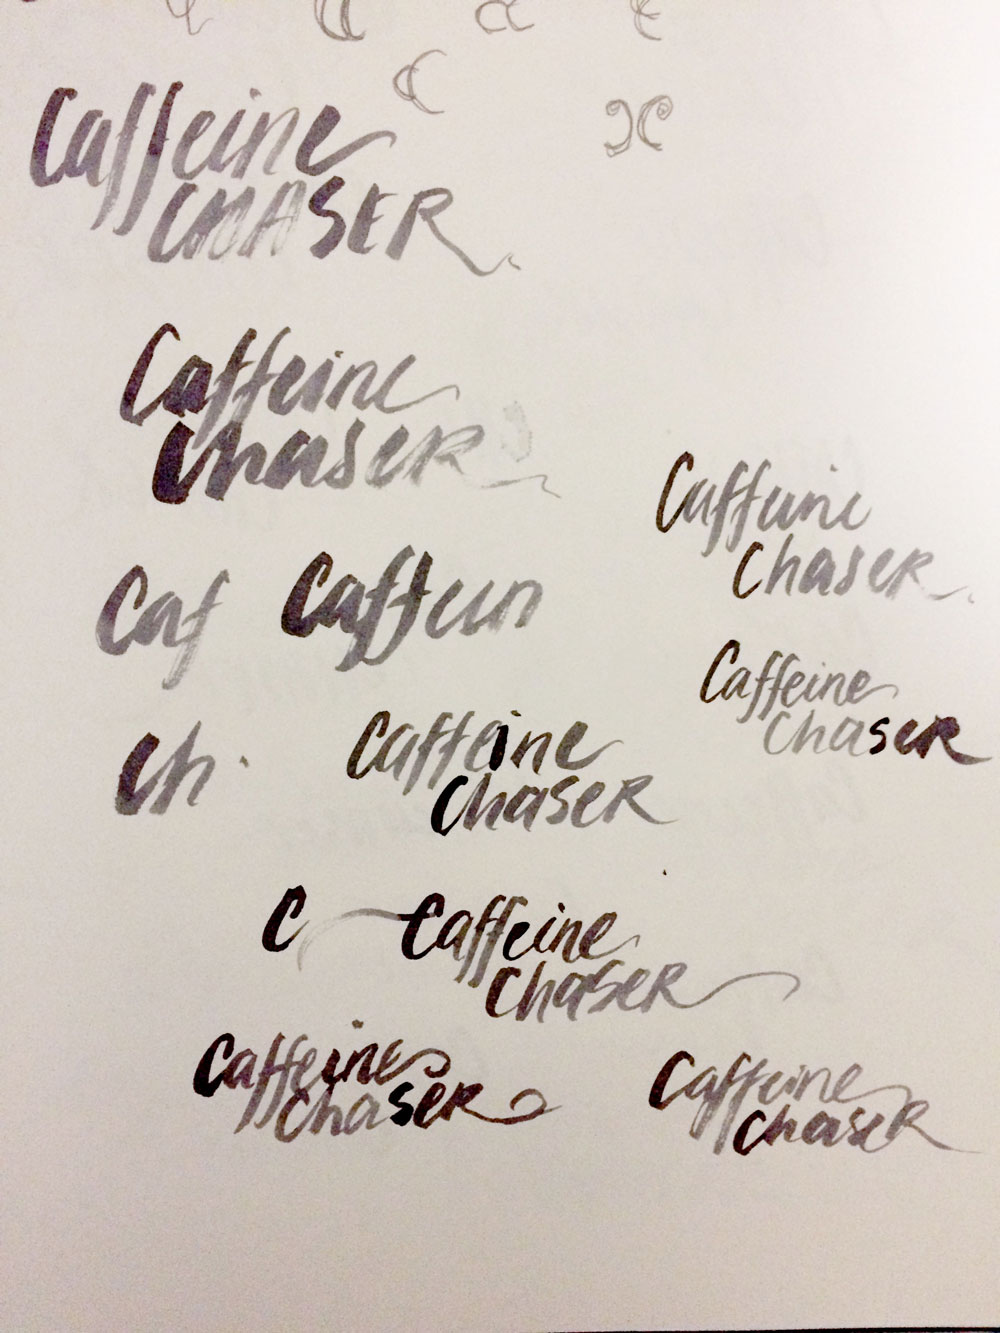 Caffeine
CHASER
Caffeine
ChaseR
Caffeine
ChaseR
Caf Caffein
Caffeine
ChaseR
Ch
Caffeine
ChaseR
C Caffeine
ChaseR
Caffeine
ChaseR
Caffeine
ChaseR